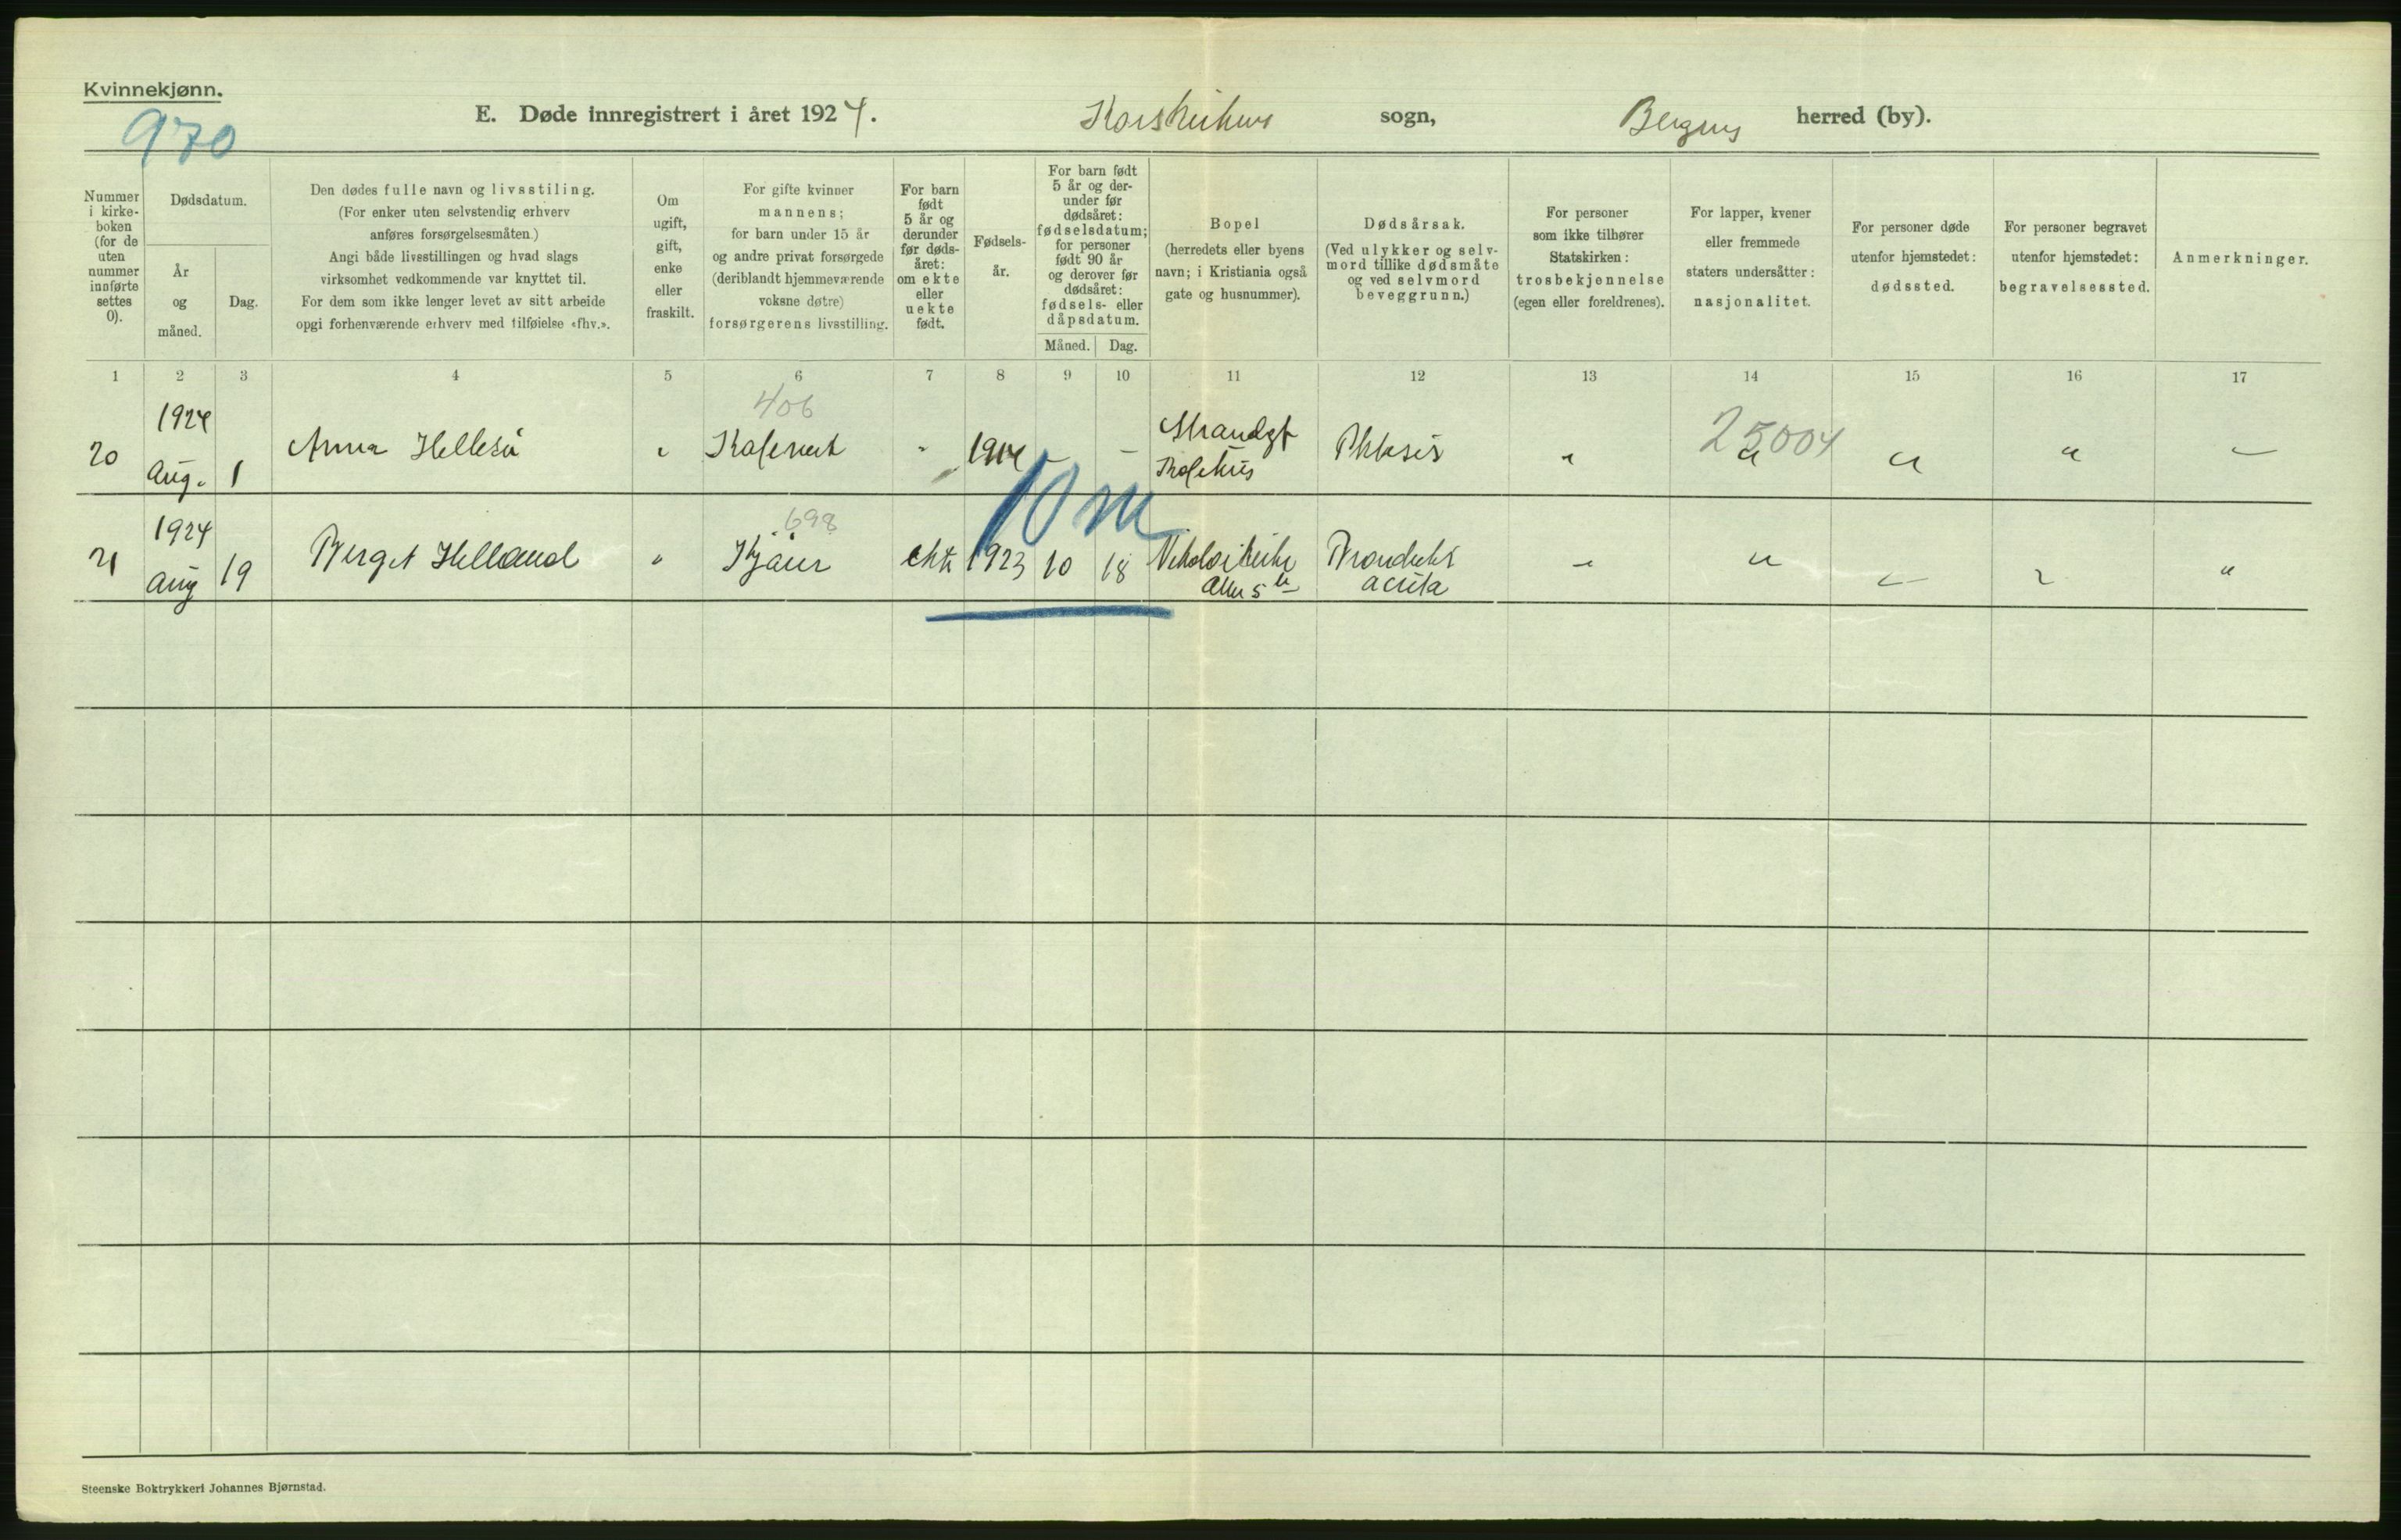 Kvinnekjønn.
970
E. Døde innregistrert i året 1924. Korskirkens sogn, Bergens herred (by).
Nummer
i kirke-
boken
(for de
uten
nummer
innførte
settes
0).
Dødsdatum.
År
og
måned.
Dag.
Den dødes fulle navn og livsstiling.
(For enker uten selvstendig erhverv
anføres forsørgelsesmåten.)
Angi både livsstillingen og hvad slags
virksomhet vedkommende var knyttet til.
For dem som ikke lenger levet av sitt arbeide
opgi forhenværende erhverv med tilføielse «fhv.».
Om
ugift,
gift,
enke
eller
fraskilt.
For gifte kvinner
mannens;
for barn under 15 år
og andre privat forsørgede
(deriblandt hjemmeværende
voksne døtre)
forsørgerens livsstilling.
For barn
født
5 år og
derunder
før døds-
året:
om ekte
eller
uekte
født.
Fødsels-
år.
For barn født
5 år og der-
under før
dødsåret:
fødselsdatum;
for personer
født 90 år
og derover før
dødsåret:
fødsels- eller
dåpsdatum.
Måned. Dag.
Bopel
(herredets eller byens
navn; i Kristiania også
gate og husnummer).
Dødsårsak.
(Ved ulykker og selv-
mord tillike dødsmåte
og ved selvmord
beveggrunn.)
For personer
som ikke tilhører
Statskirken:
trosbekjennelse
(egen eller foreldrenes).
For lapper, kvener
eller fremmede
staters undersåtter:
nasjonalitet.
For personer døde
utenfor hjemstedet:
dødssted.
For personer begravet
utenfor hjemstedet:
begravelsessted.
Anmerkninger.
1 2 3 4 5 6 7 8 9 10 11 12 13 14 15 16 17
406
1924
20 Aug. 1 Anna Hellesø " " 1904 - - Strandgt Phtisis " 25004 " " -
10 m
698
1924
21 Aug 19 Birgit Helland " ekte 1923 10 18 Nikolaikirke " " " "
acuta
Steenske Boktrykkeri Johannes Bjørnstad.